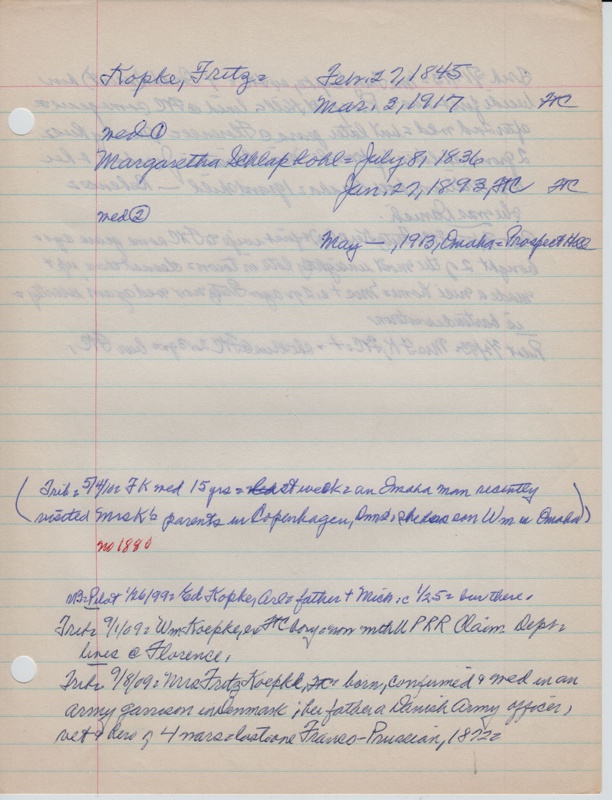 Kopke, Fritz = Feb. 27, 1845
Mar. 2, 1917 FC
med ①
Margaretha Schlapkohl = July 8, 1836
Jan. 27, 1893, FC FC
med ②
May —, 1913, Omaha = Prospect Hill
(Trib = 5/4/02 FK med 15 yrs = last week = an Omaha man recently
visited Mrs K's parents in Copenhagen, son Wm @ Omaha)
no 1880
NB = Pilot 1/26/99 = Ed Kopke, father + Mich : c 1/25 = bur there.
Trib = 9/1/09 = Wm Koepke, ex FC boy = now with U P RR Claim Dept =
lives @ Florence.
Trib = 9/8/09 = Mrs Fritz Koepke, FC = born, confirmed & med in an
army garrison in Denmark ; her father a Danish Army officer,
vet & hero of 4 wars = last one Franco-Prussian, 1872 =